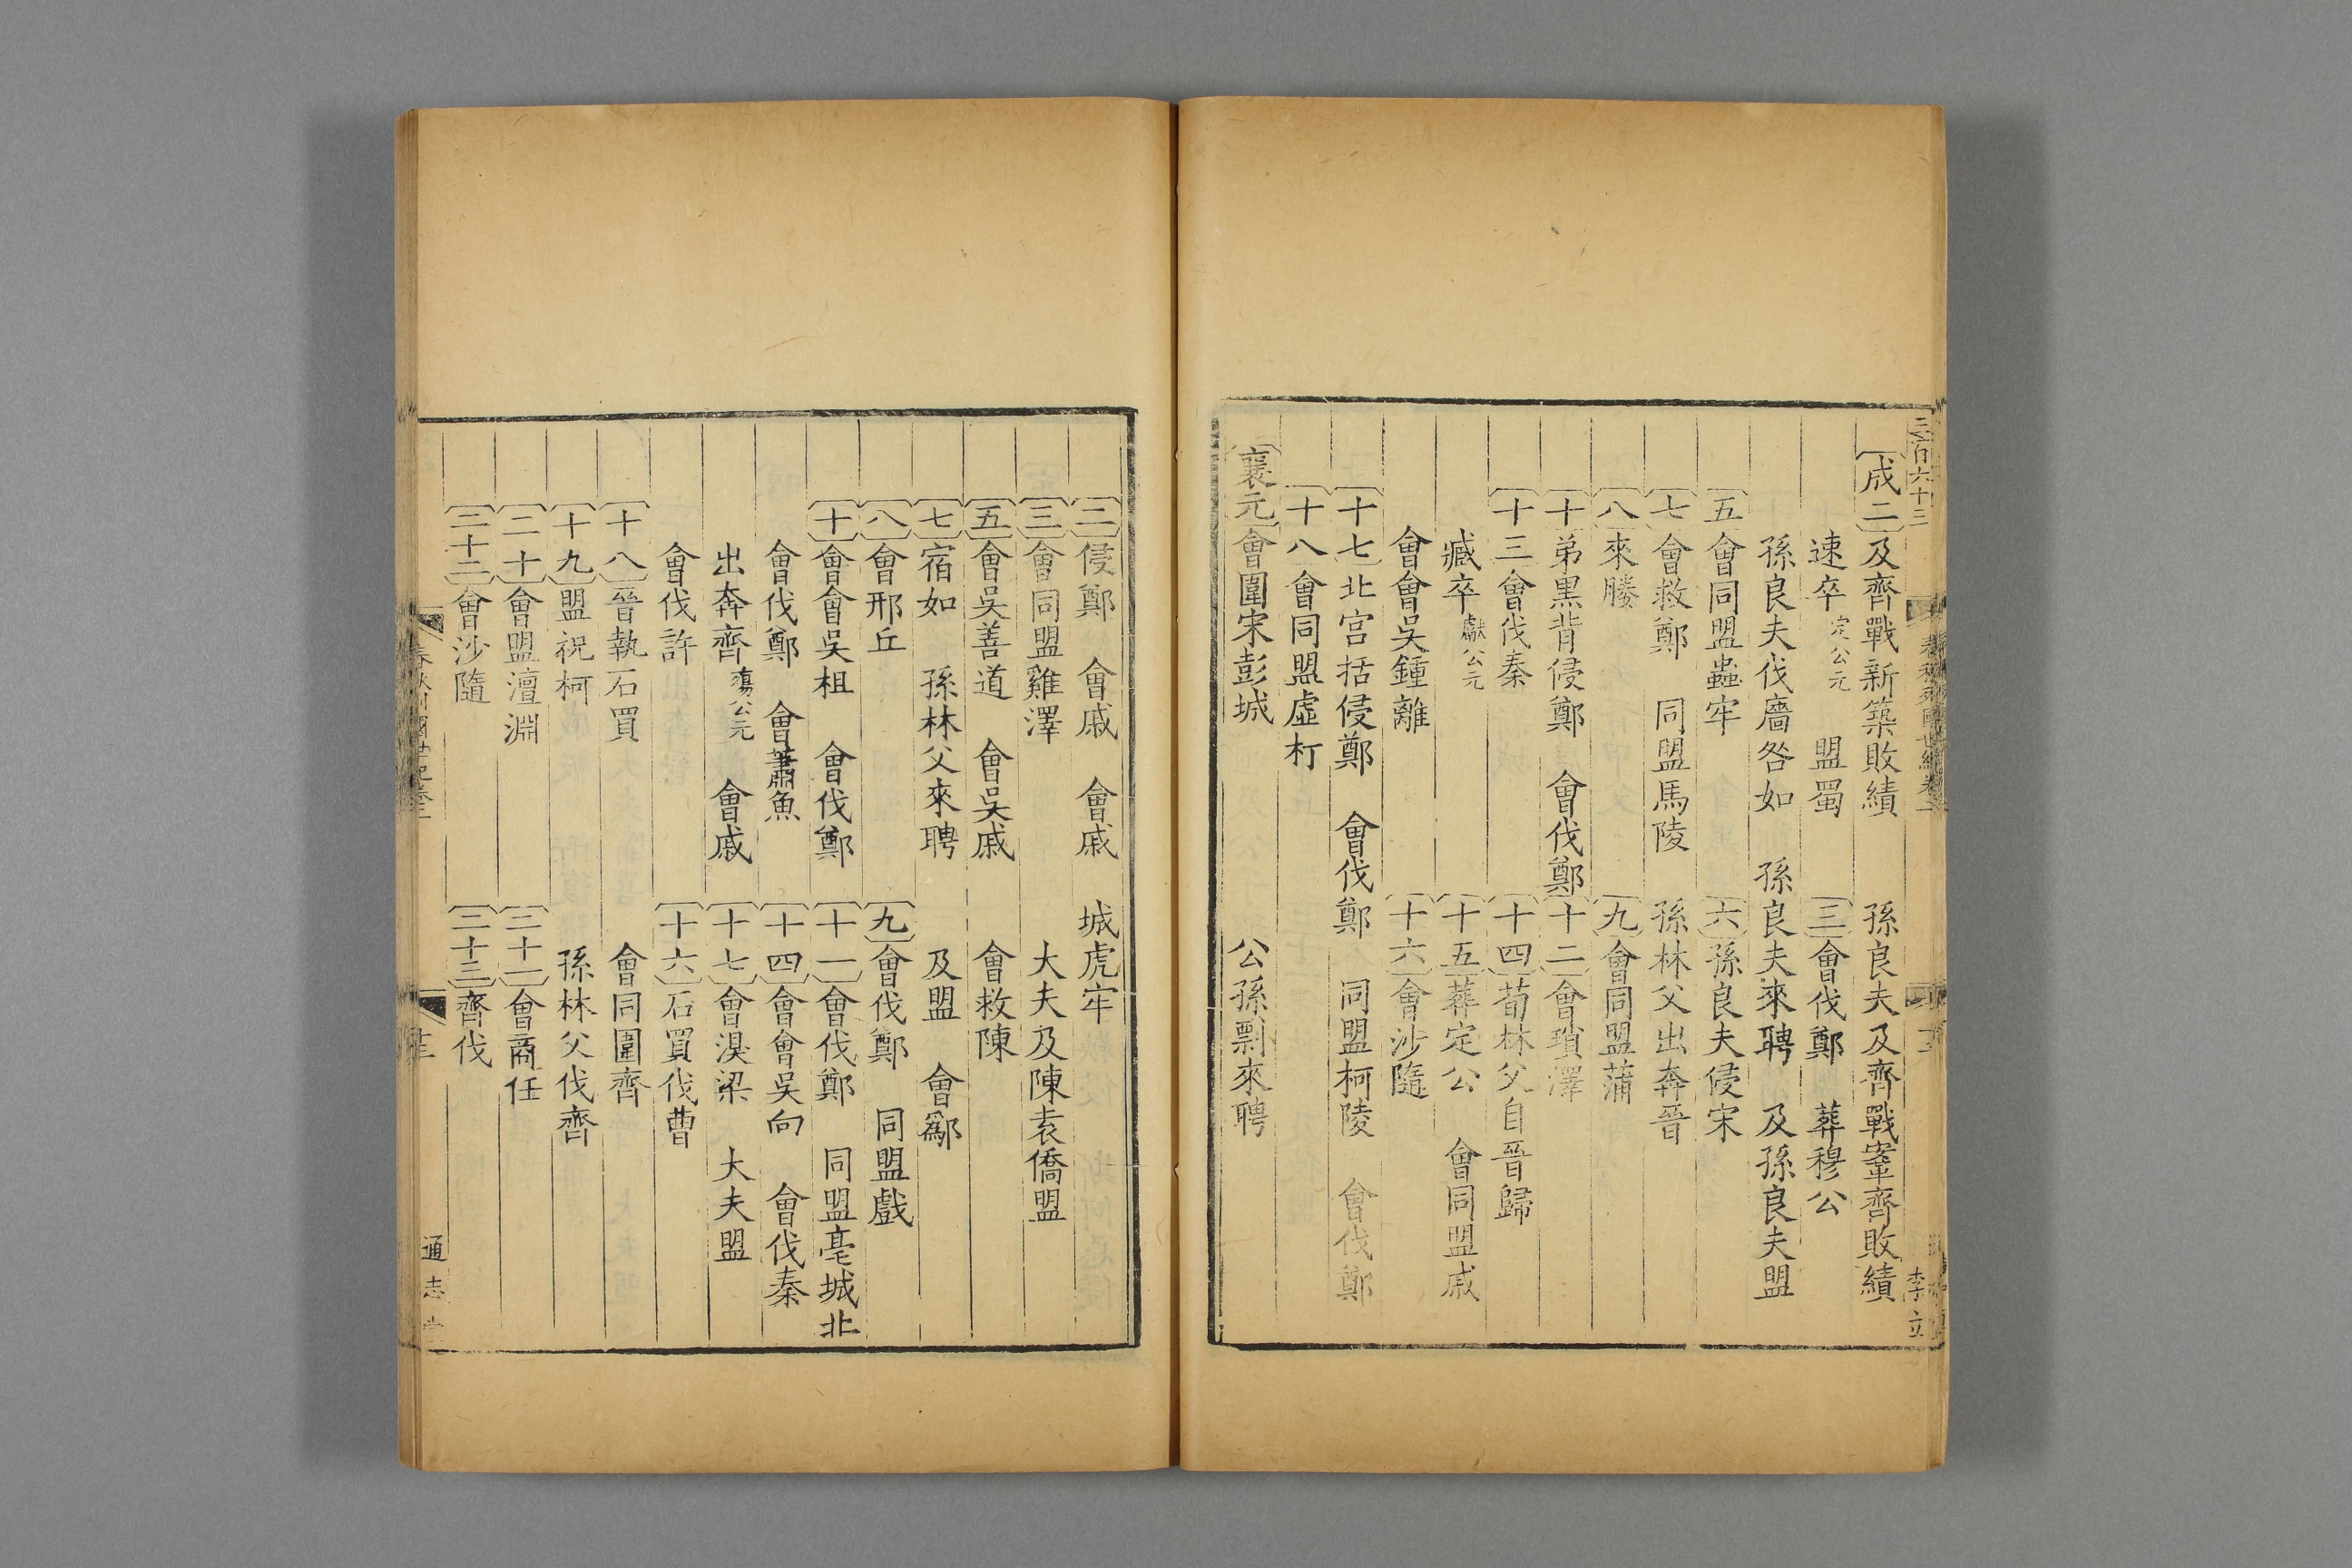 成二及齊戰新築敗績 孫良夫及齊戰鞌齊敗績
速卒定公元 盟蜀 三會伐鄭 葬穆公
孫良夫伐廧咎如 孫良夫來聘 及孫良夫盟
五會同盟蟲牢 六孫良夫侵宋
七會救鄭 同盟馬陵 孫林父出奔晉
八來媵 九會同盟蒲
十弟黑背侵鄭 會伐鄭 十二會瑣澤
十三會伐秦 十四荀林父自晉歸
臧卒獻公元 十五葬定公 會同盟戚
會會吳鍾離 十六會沙隨
十七北宮括侵鄭 會伐鄭 同盟柯陵 會伐鄭
十八會同盟虛朾
襄元會圍宋彭城 公孫剽來聘
二侵鄭 會戚 會戚 城虎牢
三會同盟雞澤 大夫及陳袁僑盟
五會吳善道 會吳戚 會救陳
七宿如 孫林父來聘 及盟 會鄬
八會邢丘 九會伐鄭 同盟戲
十會會吳柤 會伐鄭 十一會伐鄭 同盟亳城北
會伐鄭 會蕭魚 十四會會吳向 會伐秦
出奔齊殤公元 會戚 十七會湨梁 大夫盟
會伐許 十六石買伐曹
十八晉執石買 會同圍齊
十九盟祝柯 孫林父伐齊
二十會盟澶淵 二十一會商任
二十二會沙隨 二十三齊伐
通志
李立